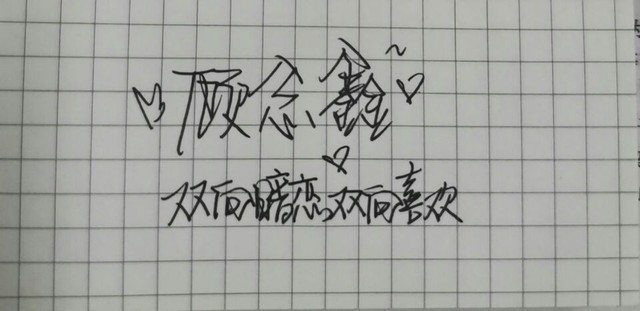 顾念鑫~
双向暗恋双向喜欢